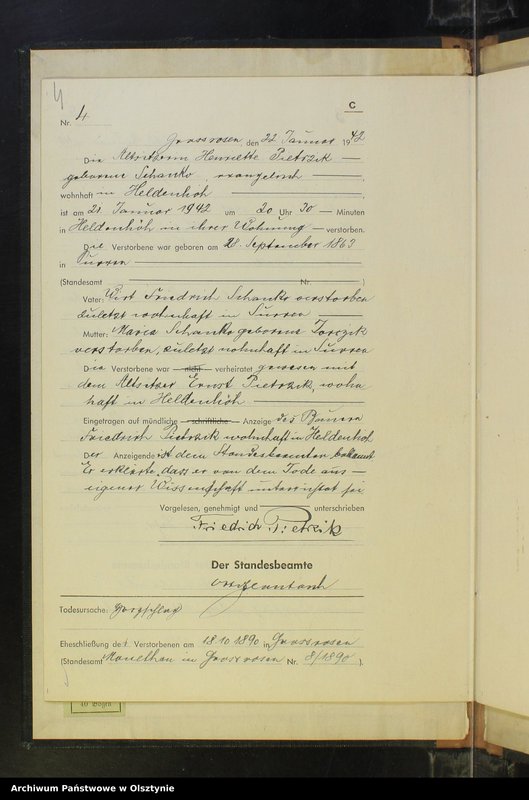 C
Nr. 4
Grossrosen den 22 Januar 1942
Die Altsitzerin Henriette Pietrzik
geborene Schanko, evangelisch
wohnhaft in Heldenhöh
ist am 21. Januar 1942 um 20 Uhr 30 Minuten
in Heldenhöh in ihrer Wohnung verstorben.
Die Verstorbene war geboren am 28. September 1863
in
(Standesamt Nr. )
Vater: Wirt Friedrich Schanko verstorben
zuletzt wohnhaft in
Mutter: Maria Schanko geborene
verstorben, zuletzt wohnhaft in
Die Verstorbene war nicht verheiratet gewesen mit
dem Altsitzer Ernst Pietrzik, wohn
haft in Heldenhöh
Eingetragen auf mündliche schriftliche Anzeige des Bauern
Friedrich Pietrzik wohnhaft in Heldenhöh
Der Anzeigende ist dem Standesbeamten bekannt
Er erklärte, dass er von dem Tode aus
eigener Wissenschaft unterrichtet sei
Vorgelesen, genehmigt und unterschrieben
Friedrich Pietrzik
Der Standesbeamte
Todesursache: Herzschlag
Eheschließung de r. Verstorbenen am 18.10.1890 in Grossrosen
(Standesamt in Grossrosen Nr. 8/1890 ).
10 Bogen
Archiwum Państwowe w Olsztynie